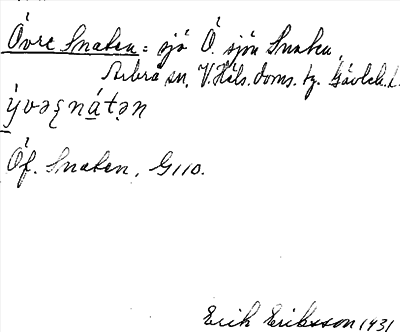 Övre Snaten = sjö Ö. sjön Snaten,
Arbrå sn, V. Häls. doms. tg. Gävleb. l.
ý̱vəʂná̱tən
Öf. Snaten, G110.
Erik Eriksson 1931